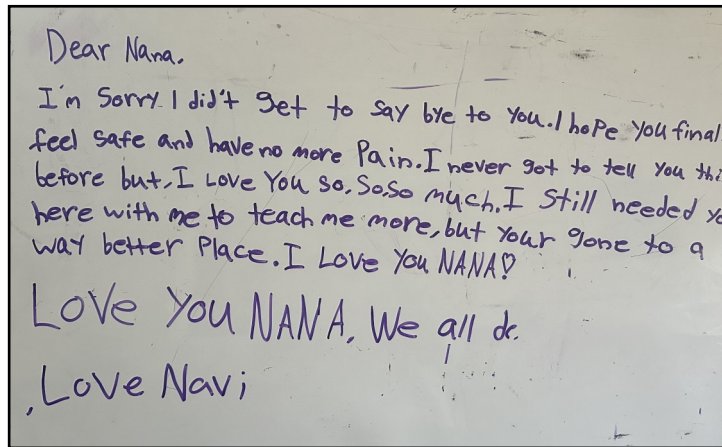 Dear Nana.
I'm Sorry I did't get to say bye to you. I hope you final
feel safe and have no more Pain. I never got to tell you thi
before but, I Love You so, So, so much. I Still needed yo
here with me to teach me more, but your gone to a
way better Place. I Love You NANA♡
Love You NANA, We all do.
, Love Navi